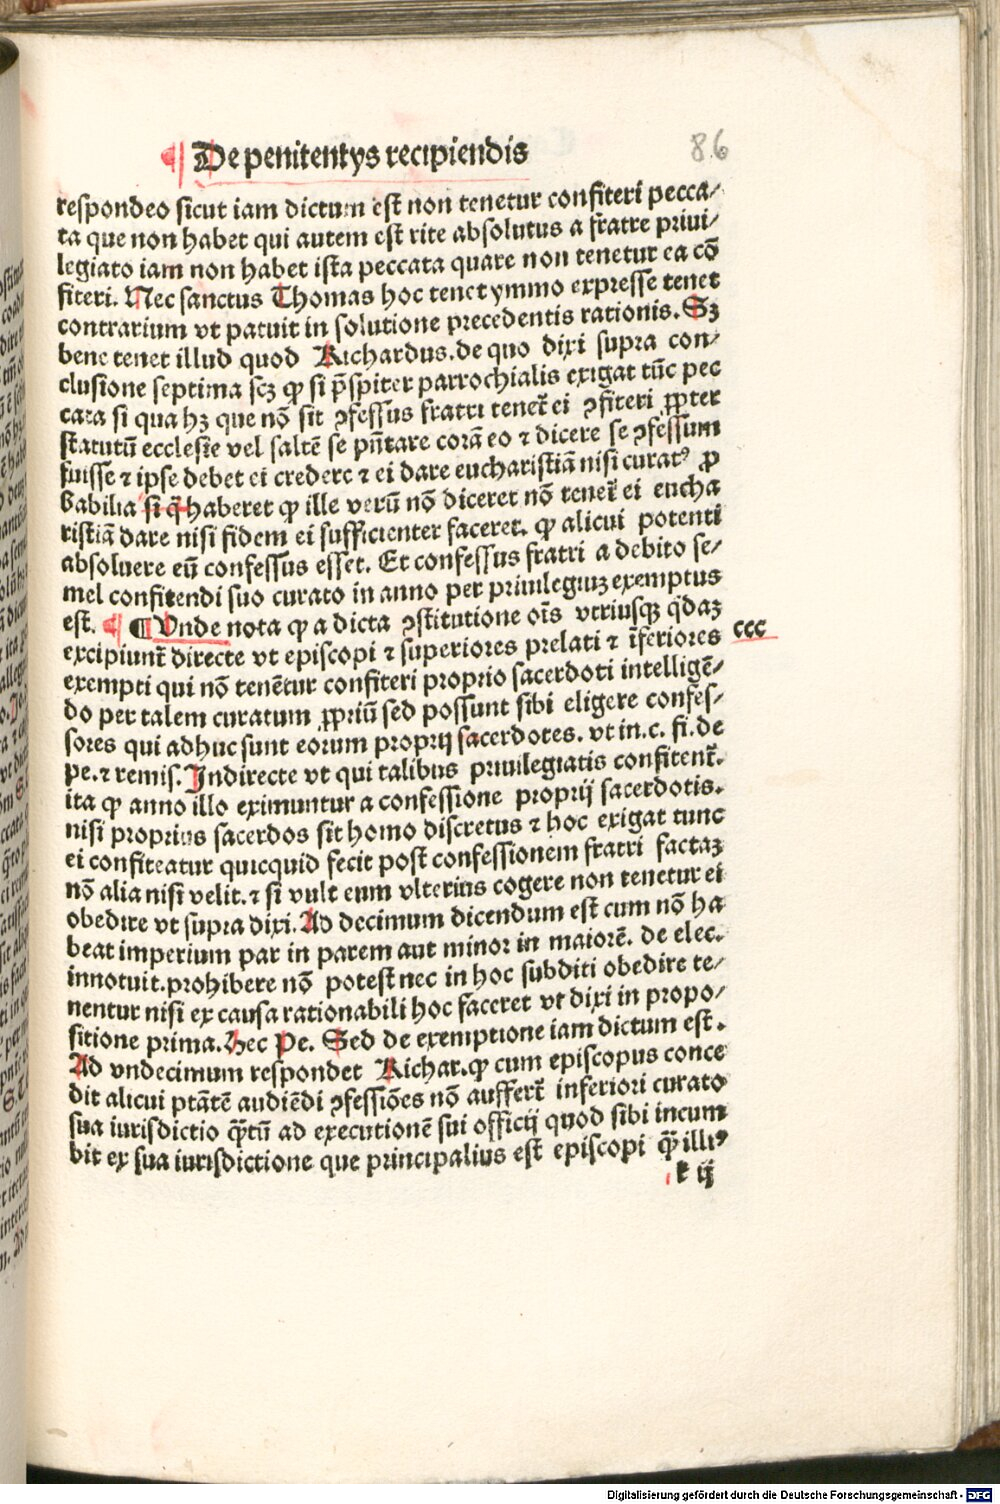 ¶ De penitentys recipiendis
86
respondeo sicut iam dictum est non tenetur confiteri pecca⸗
ta que non habet qui autem est rite absolutus a fratre priui⸗
legiato iam non habet ista peccata quare non tenetur ea cō
fiteri. Nec sanctus Thomas hoc tenet ymmo expresse tenet
contrarium vt patuit in solutione precedentis rationis. Sꝫ
bene tenet illud quod Richardus. de quo dixi supra con⸗
clusione septima scꝫ ꝙ si p̄spiter parrochialis exigat tūc pec
cata si qua hꝫ que nō sit ꝯfessus fratri tenet̄ ei ꝯfiteri ꝓpter
statutū ecclesie vel saltē se pn̄tare corā eo ⁊ dicere se ꝯfessum
fuisse ⁊ ipse debet ei credere ⁊ ei dare eucharistiā nisi curatꝰ ꝓ
babilia si q̄ haberet ꝙ ille verū nō diceret nō tenet̄ ei eucha
ristiā dare nisi fidem ei sufficienter faceret. ꝙ alicui potenti
absoluere eū confessus esset. Et confessus fratri a debito se⸗
mel confitendi suo curato in anno per priuilegiuꝫ exemptus
est. ¶ ¶ Vnde nota ꝙ a dicta ꝯstitutione oīs vtriusqꝫ q̄daꝫ
ccc
excipiunt̄ directe vt episcopi ⁊ superiores prelati ⁊ īferiores
exempti qui nō tenētur confiteri proprio sacerdoti intelligē⸗
do per talem curatum ꝓpriū sed possunt sibi eligere confes⸗
sores qui adhuc sunt eorum proprij sacerdotes. vt in. c. fi. de
pe. ⁊ remis. Indirecte vt qui talibus priuilegiatis confitent̄.
ita ꝙ anno illo eximuntur a confessione proprij sacerdotis.
nisi proprius sacerdos sit homo discretus ⁊ hoc exigat tunc
ei confiteatur quicquid fecit post confessionem fratri factaꝫ
nō alia nisi velit. ⁊ si vult eum vlterius cogere non tenetur ei
obedire vt supra dixi. Ad decimum dicendum est cum nō ha
beat imperium par in parem aut minor in maiorē. de elec.
innotuit. prohibere nō potest nec in hoc subditi obedire te⸗
nentur nisi ex causa rationabili hoc faceret vt dixi in propo⸗
sitione prima. Hec Pe. Sed de exemptione iam dictum est.
Ad vndecimum respondet Richar. ꝙ cum episcopus conce
dit alicui ptātē audiēdi ꝯfessiōes nō auffert̄ inferiori curato
sua iurisdictio q̄tū ad executionē sui officij quod sibi incum
bit ex sua iurisdictione que principalius est episcopi q̄ illiꝰ
k ij
Digitalisierung gefördert durch die Deutsche Forschungsgemeinschaft - DFG